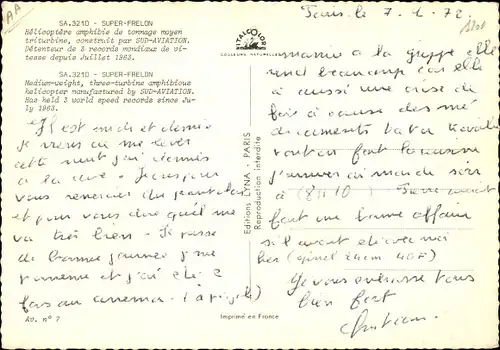 AA
SA.3210 - SUPER-FRELON
Hélicoptère amphibie de tonnage moyen
triturbine, construit par SUD-AVIATION.
Détenteur de 3 records mondiaux de vi-
tesse depuis Juillet 1963.
SA.3210 - SUPER-FRELON
Medium-weight, three-turbine amphibious
helicopter manufactured by SUD-AVIATION.
Has held 3 world speed records since Ju-
ly 1963.
Il est midi et demie
je viens de me lever
cette nuit j'ai dormis
à la cave. Je vais pour
vous remercier du pantalon
et pour vous dire qu'il me
va très bien. Je passe
de bonnes journées je me
promène et j'ai été 2
fois au cinéma. (à pigalle)
Av. n° 7
Imprimé en France
Editions LYNA - PARIS
Reproduction interdite
ITALCOLOR
COULEURS NATURELLES
Paris. le 7. 72
mamie a la grippe elle
rend beaucoup car elle
a aussi une crise de
foie à cause des mé
dicaments
vont on fort
j'arriverai mardi soir
à (8H10) Pierre avait
fait une bonne affaire
s'il avait
40F)
Je vous embrasse tous
bien fort
Christian.